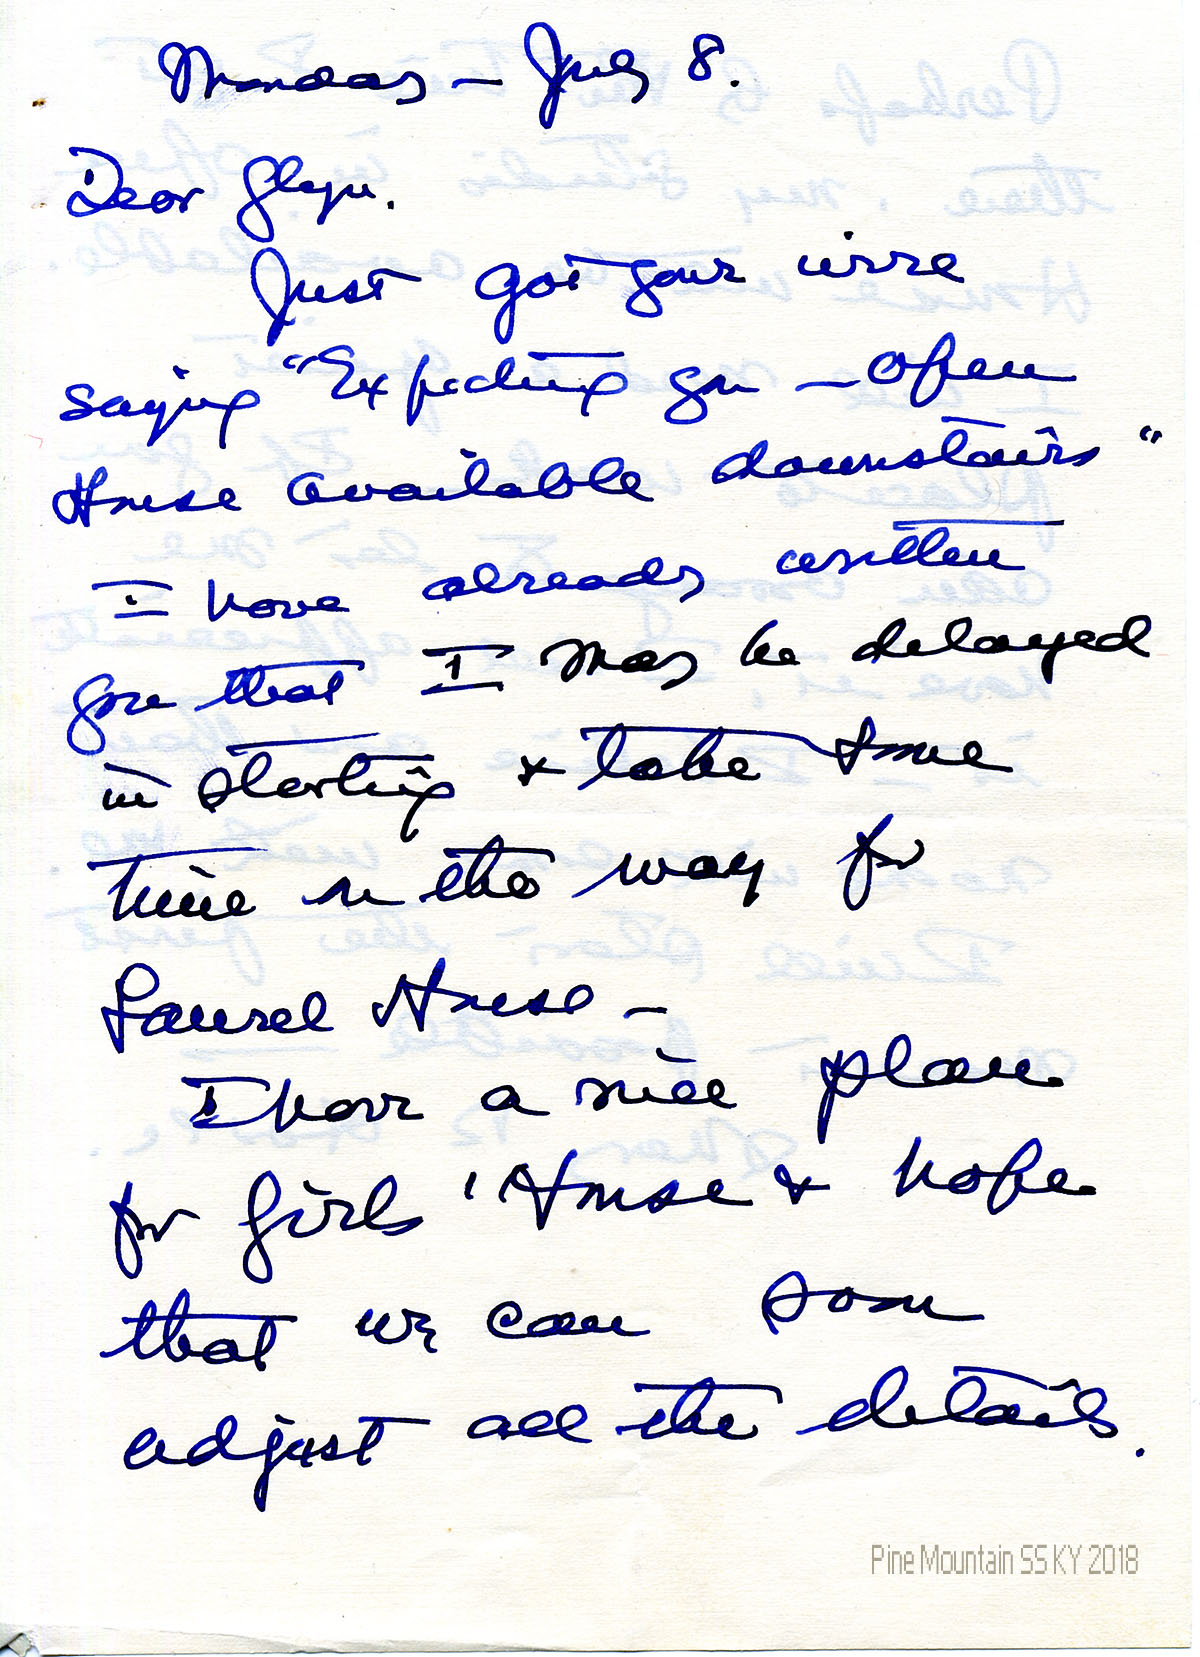 Monday – July 8.
Dear Glyn.
Just got your wire
saying "Expecting you – open
House available downstairs"
I have already written
you that I may be delayed
in starting & take some
time on the way for
Laurel House –
I have a nice plan
for Girls' House & hope
that we can soon
adjust all the details.
Pine Mountain SS KY 2018